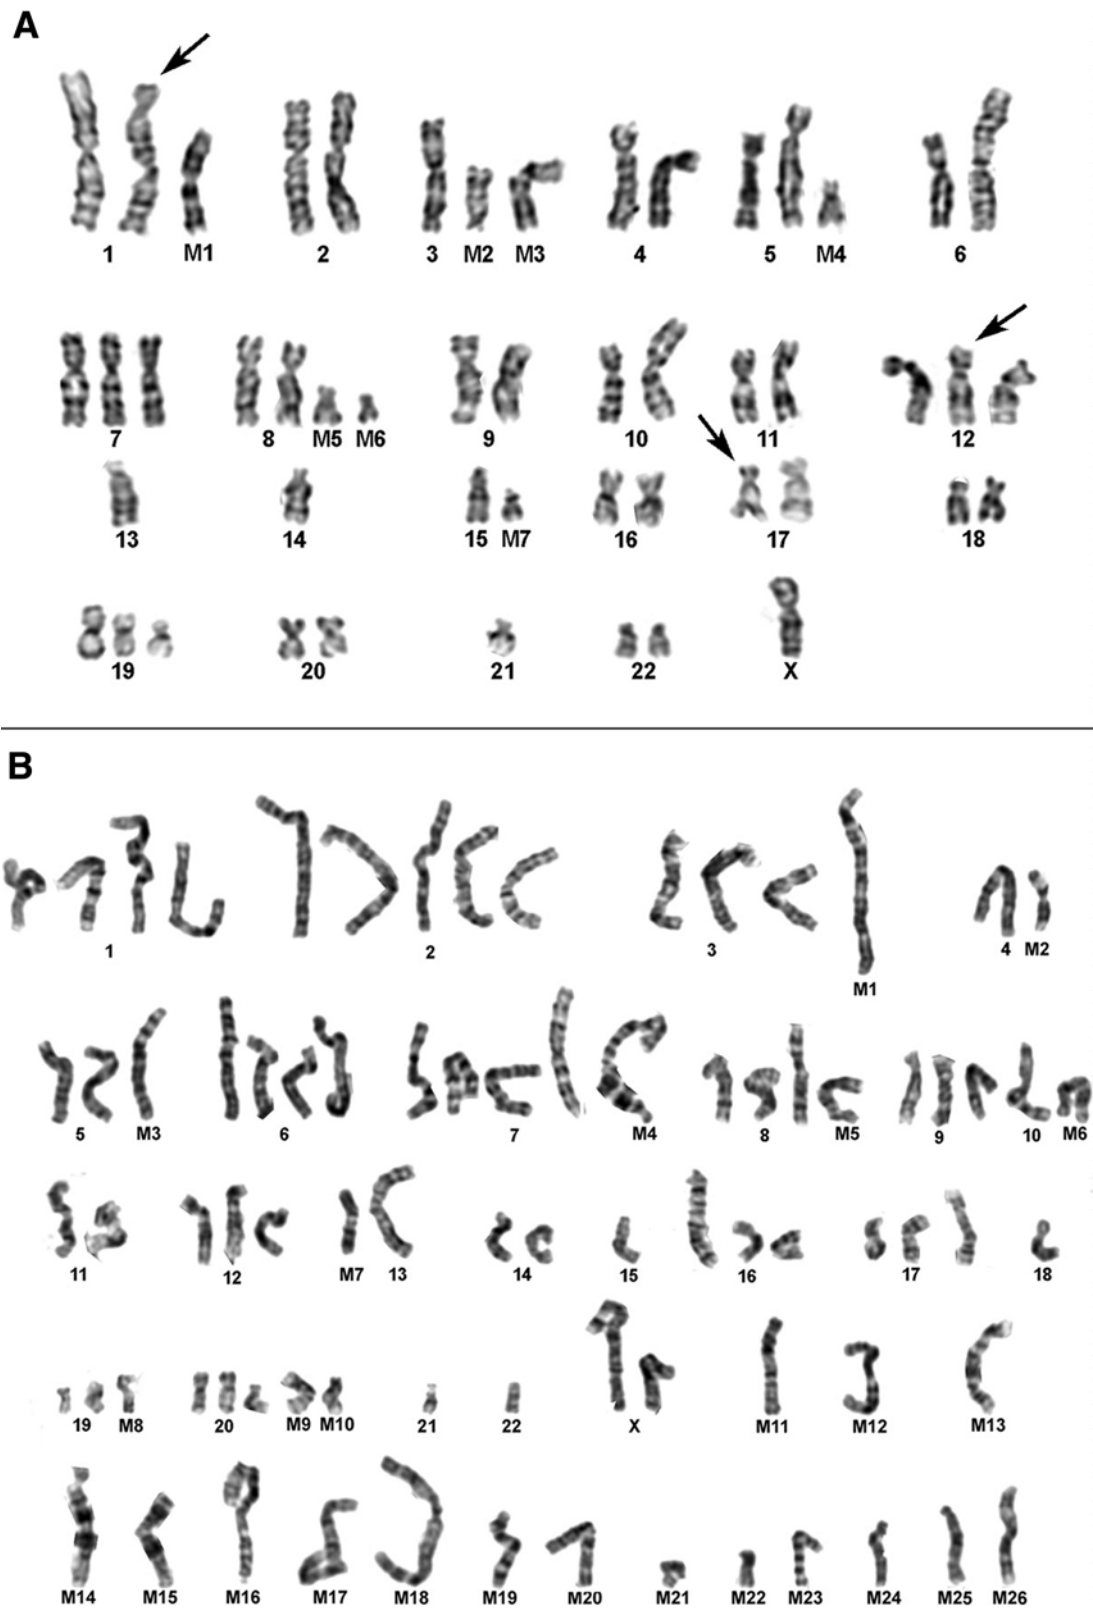 A
1 M1 2 3 M2 M3 4 5 M4 6
7 8 M5 M6 9 10 11 12
13 14 15 M7 16 17 18
19 20 21 22 X
B
1 2 3 M1 4 M2
5 M3 6 7 M4 8 M5 9 10 M6
11 12 M7 13 14 15 16 17 18
19 M8 20 M9 M10 21 22 X M11 M12 M13
M14 M15 M16 M17 M18 M19 M20 M21 M22 M23 M24 M25 M26